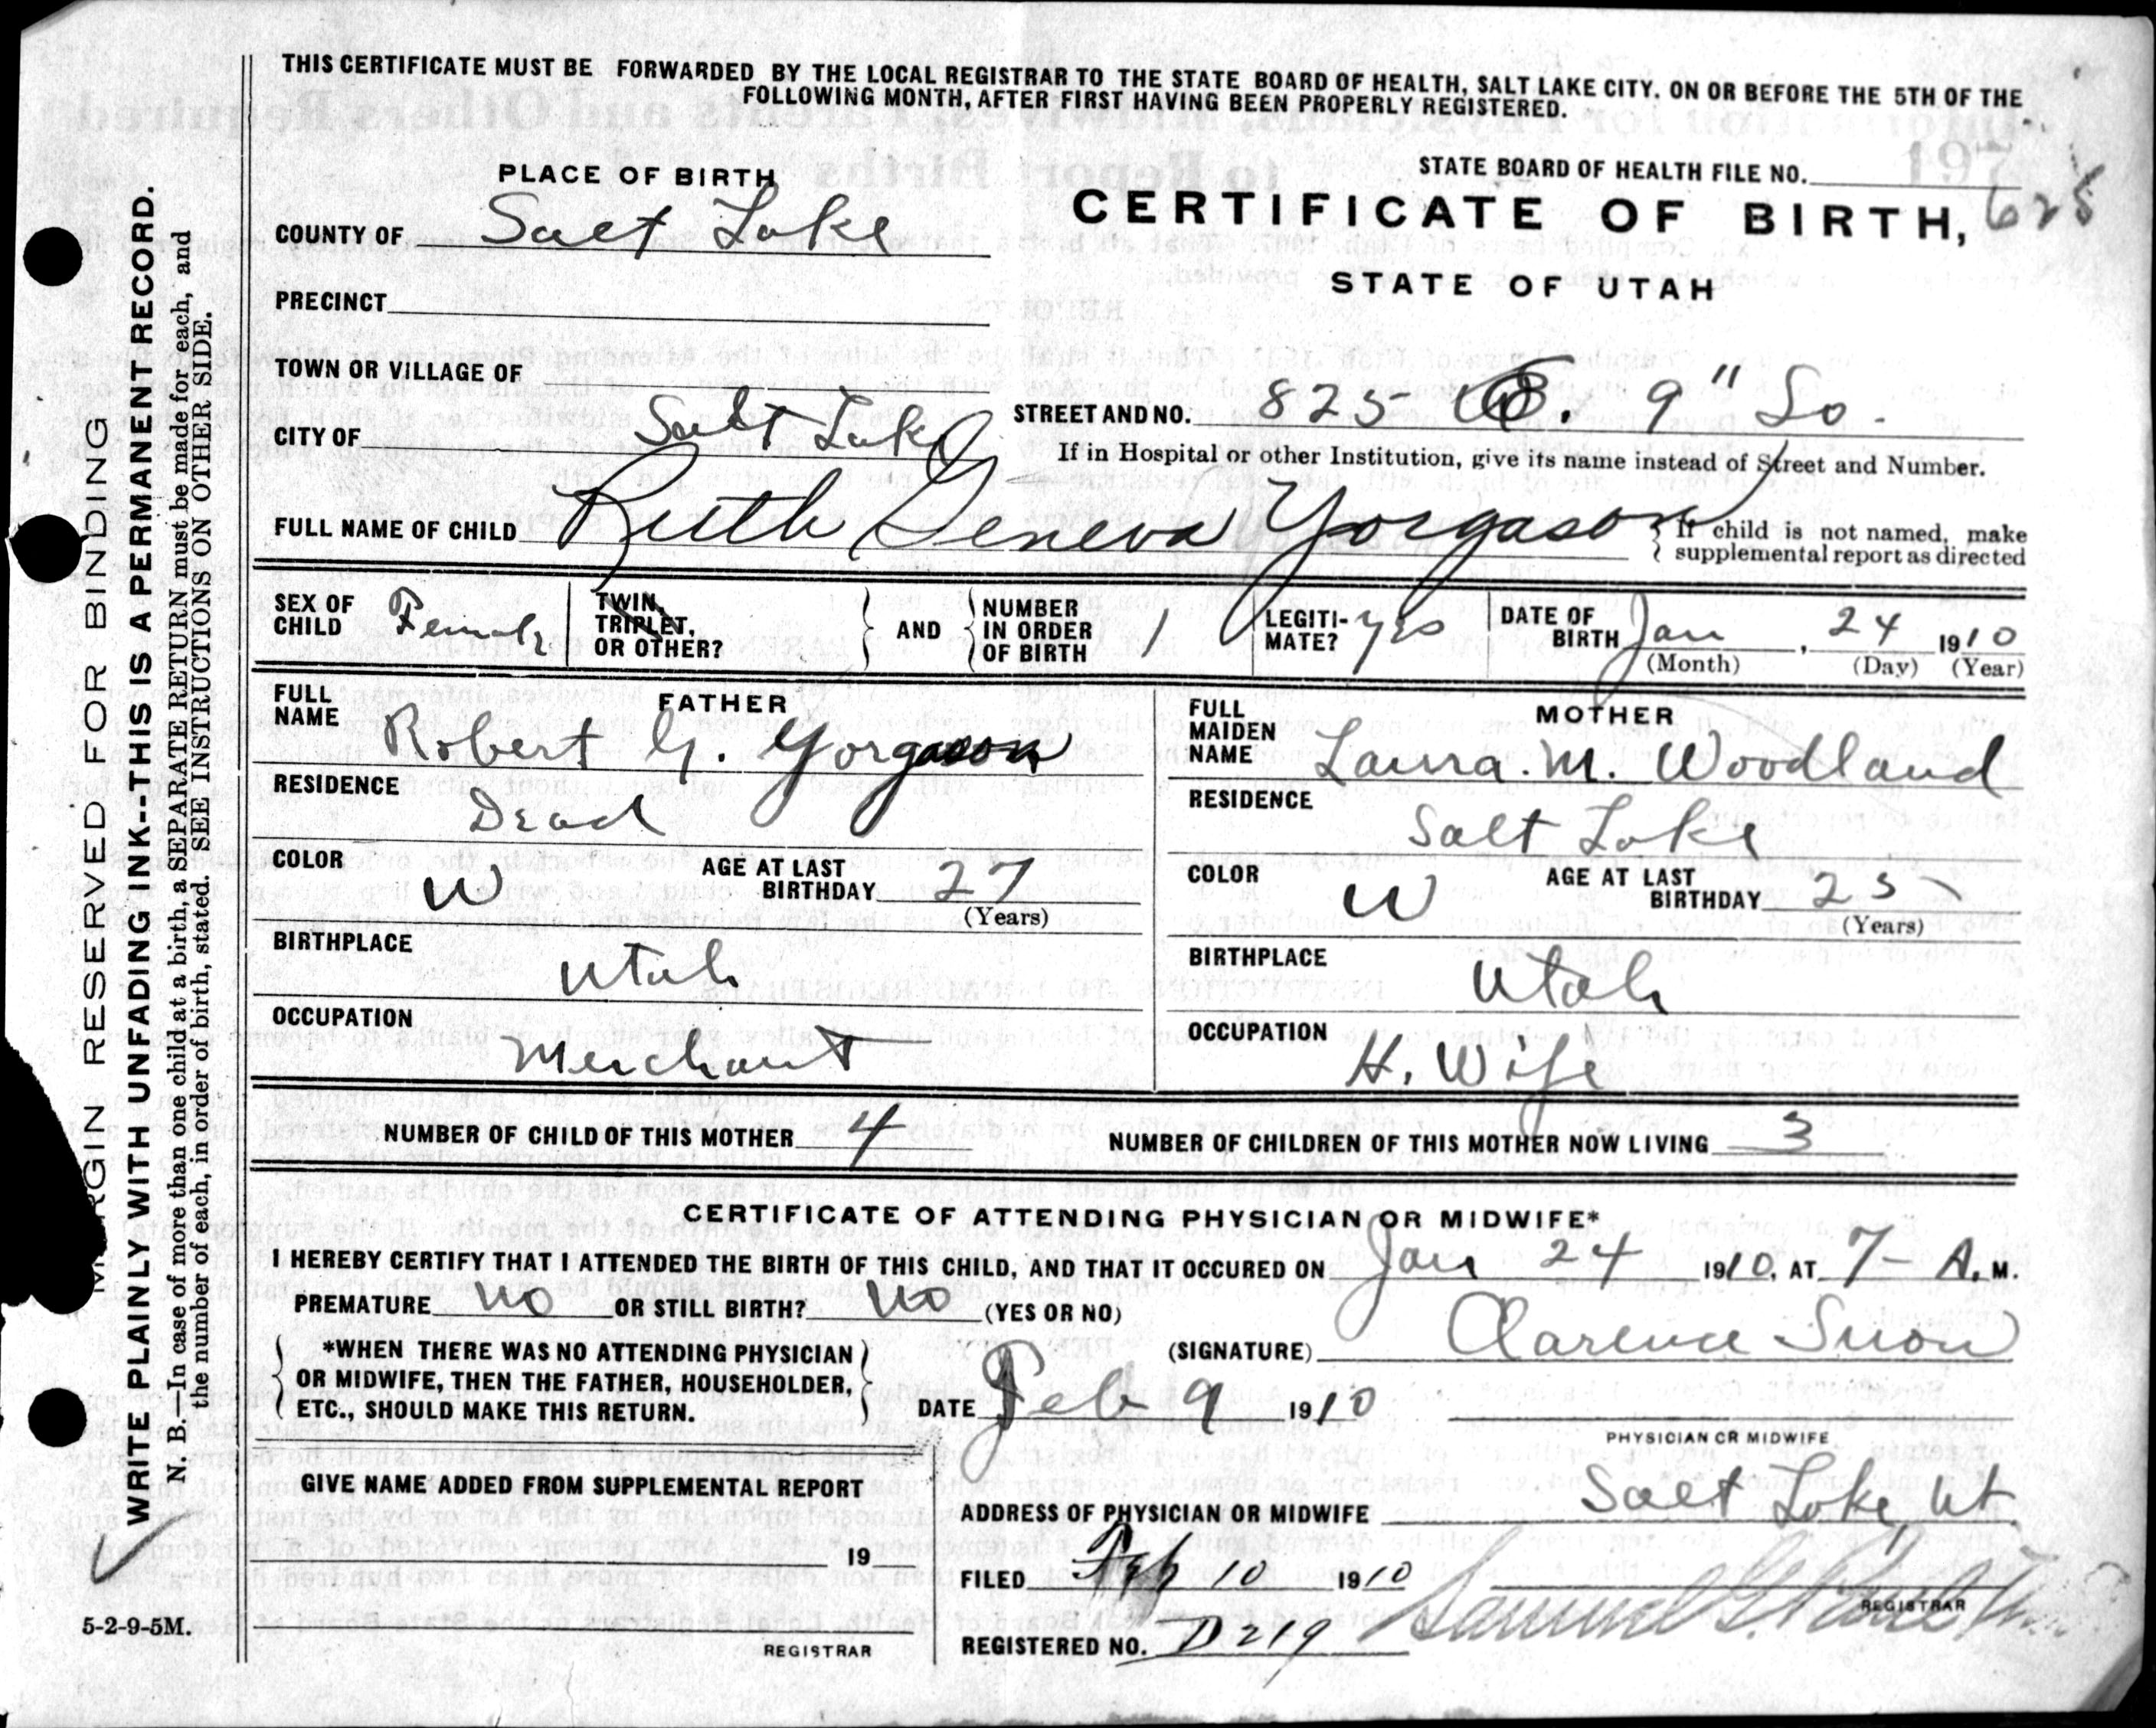 THIS CERTIFICATE MUST BE FORWARDED BY THE LOCAL REGISTRAR TO THE STATE BOARD OF HEALTH, SALT LAKE CITY. ON OR BEFORE THE 5TH OF THE
FOLLOWING MONTH, AFTER FIRST HAVING BEEN PROPERLY REGISTERED.
PLACE OF BIRTH
STATE BOARD OF HEALTH FILE NO.
COUNTY OF Salt Lake
CERTIFICATE OF BIRTH, 628
STATE OF UTAH
PRECINCT
TOWN OR VILLAGE OF
CITY OF Salt Lake
STREET AND NO. 825 E. 9" So.
If in Hospital or other Institution, give its name instead of Street and Number.
FULL NAME OF CHILD Ruth Geneva Yorgason
If child is not named, make
supplemental report as directed
SEX OF CHILD Female
TWIN, TRIPLET, OR OTHER?
AND
NUMBER IN ORDER OF BIRTH 1
LEGITI-MATE? yes
DATE OF BIRTH Jan, 24 1910
(Month) (Day) (Year)
FATHER
FULL NAME Robert G. Yorgason
RESIDENCE Dead
COLOR W AGE AT LAST BIRTHDAY 27
(Years)
BIRTHPLACE Utah
OCCUPATION Merchant
MOTHER
FULL MAIDEN NAME Laura. M. Woodland
RESIDENCE Salt Lake
COLOR W AGE AT LAST BIRTHDAY 25
(Years)
BIRTHPLACE Utah
OCCUPATION H. Wife
NUMBER OF CHILD OF THIS MOTHER 4 NUMBER OF CHILDREN OF THIS MOTHER NOW LIVING 3
CERTIFICATE OF ATTENDING PHYSICIAN OR MIDWIFE*
I HEREBY CERTIFY THAT I ATTENDED THE BIRTH OF THIS CHILD, AND THAT IT OCCURED ON Jan 24 1910, AT 7- A. M.
PREMATURE no OR STILL BIRTH? no (YES OR NO)
*WHEN THERE WAS NO ATTENDING PHYSICIAN
OR MIDWIFE, THEN THE FATHER, HOUSEHOLDER,
ETC., SHOULD MAKE THIS RETURN.
(SIGNATURE) Clarence Snow
DATE Feb 9 1910
PHYSICIAN OR MIDWIFE
GIVE NAME ADDED FROM SUPPLEMENTAL REPORT
19
REGISTRAR
ADDRESS OF PHYSICIAN OR MIDWIFE Salt Lake, Ut.
FILED Feb 10 1910
REGISTRAR
REGISTERED NO. D 219
5-2-9-5M.
MARGIN RESERVED FOR BINDING
WRITE PLAINLY WITH UNFADING INK--THIS IS A PERMANENT RECORD.
N. B.—In case of more than one child at a birth, a SEPARATE RETURN must be made for each, and
the number of each, in order of birth, stated. SEE INSTRUCTIONS ON OTHER SIDE.